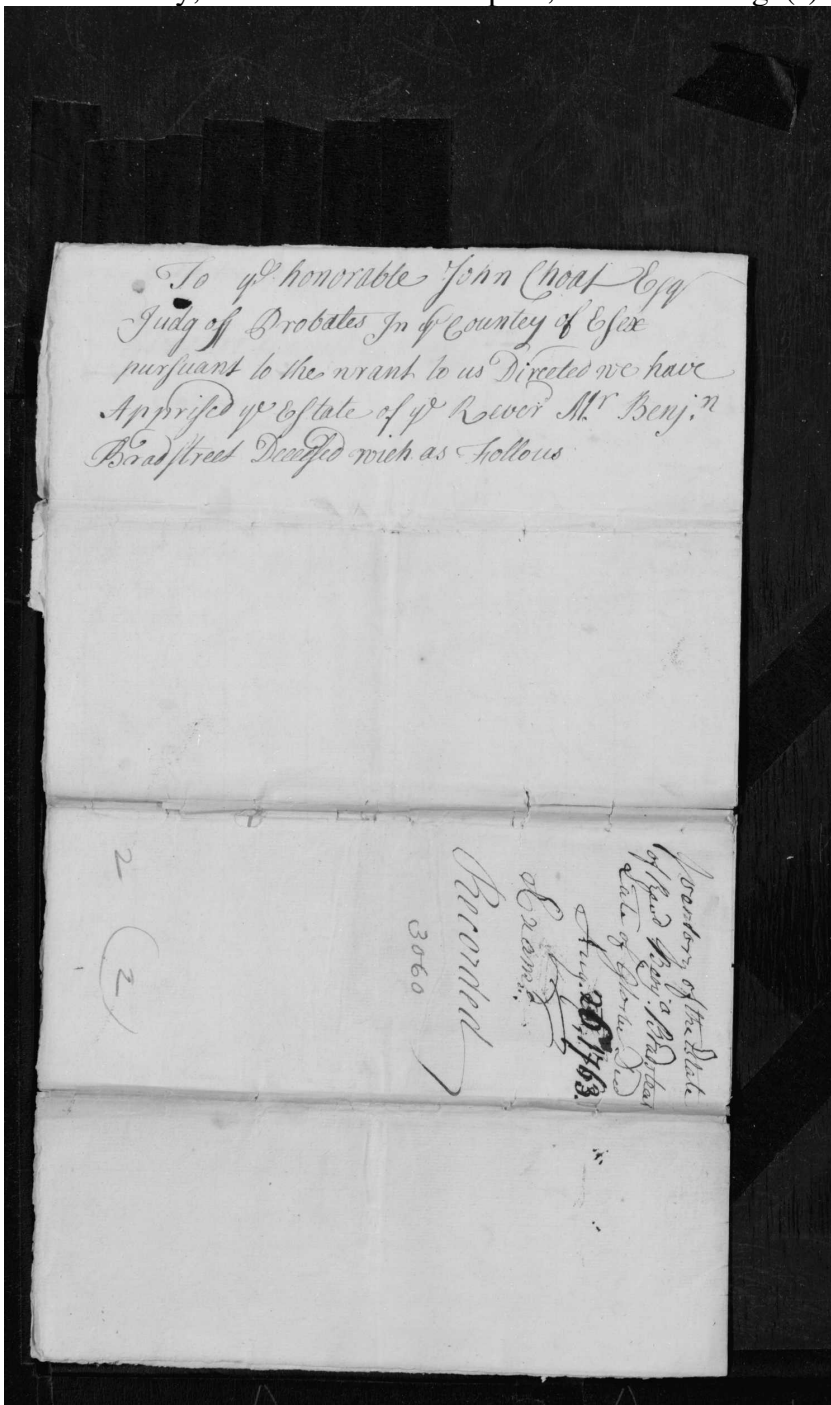 To yᵉ honorable John Choat Esqʳ
Judg off Probates In yᵉ Countey of Esex
pursuant to the wrant to us Directed we have
Apprised yᵉ Estate of yᵉ Reverd Mʳ Benjⁿ
Bradstreet Decesed wich as Follous
Inventory of the Estate
of Revd Benja Bradstreet
Late of Glocter Decd
Aug. 26, 1763.
Examd.
Recorded
3060
2 (2)